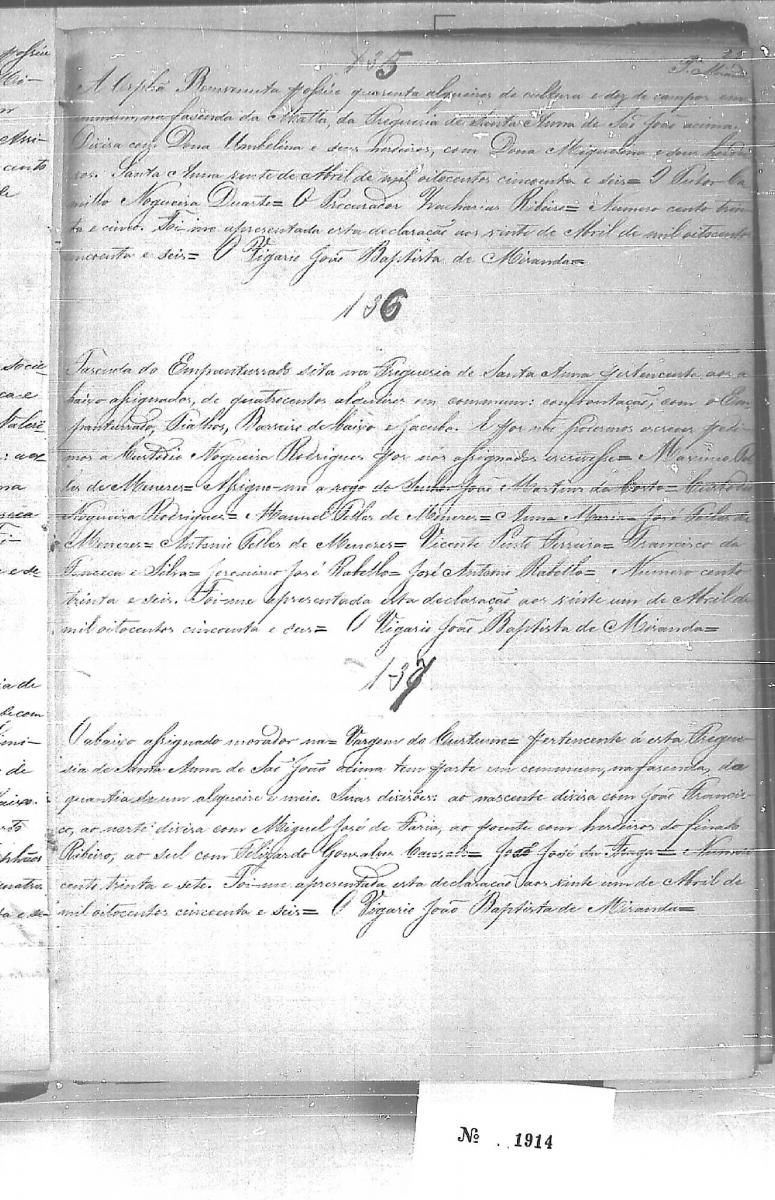 135
25
A Orphã Benvenuta possue quarenta alqueires de cultura e dez de campos em
commum, na fasenda da Matta, da Freguesia de Santa Anna de São João acima,
Divisa com Dona Umbelina e seus herdeiros, com Dona Miguelina e seus herdei
ros. Santa Anna vinte de Abril de mil oitocentos cincoenta e seis= O Tutor Ca
millo Nogueira Duarte= O Procurador Zacharias Ribeiro= Numero cento trin
ta e cinco. Foi-me apresentada esta declaracão aos vinte de Abril de mil oitocentos
cincoenta e seis= O Vigario João Baptista de Miranda=
136
Fasenda do Empanturrado sita na Freguesia de Santa Anna pertencente aos a
baixo assignados, de quatrocentos alqueires em commum: confrontacão, com o Em
panturrado, Barreiro de baixo e Jacuba. E por não podermos escrever pedi
mos a Custodio Nogueira Rodrigues por nós assignados escrevesse= Maximo Tel
les de Meneses= Assigno-me a rogo do Senhor João Martins da Costa= Custodio
Nogueira Rodrigues= Manuel Telles de Meneses= Anna Maria= José Telles de
Meneses= Antonio Telles de Meneses= Vicente Ferreira= Francisco da
Fonceca e Silva= Jeronimo José Rabello= José Antonio Rabello= Numero cento
trinta e seis. Foi-me apresentada esta declaracão aos vinte um de Abril de
mil oitocentos cincoenta e seis= O Vigario João Baptista de Miranda=
137
O abaixo assignado morador na= Vargem do Curtume= pertencente á esta Fregue
sia de Santa Anna de São João acima tem parte em commum, na fasenda, da
quantia de um alqueire e meio. Suas divisões: ao nascente divisa com João Francis
co, ao norte divisa com Miguel José de Faria, ao poente com herdeiros do finado
Ribeiro, ao sul com Felizardo Gonsalves José da Fraga= Numero
cento trinta e sete. Foi-me apresentada esta declaracão aos vinte um de Abril de
mil oitocentos cincoenta e seis= O Vigario João Baptista de Miranda=
No. 1914